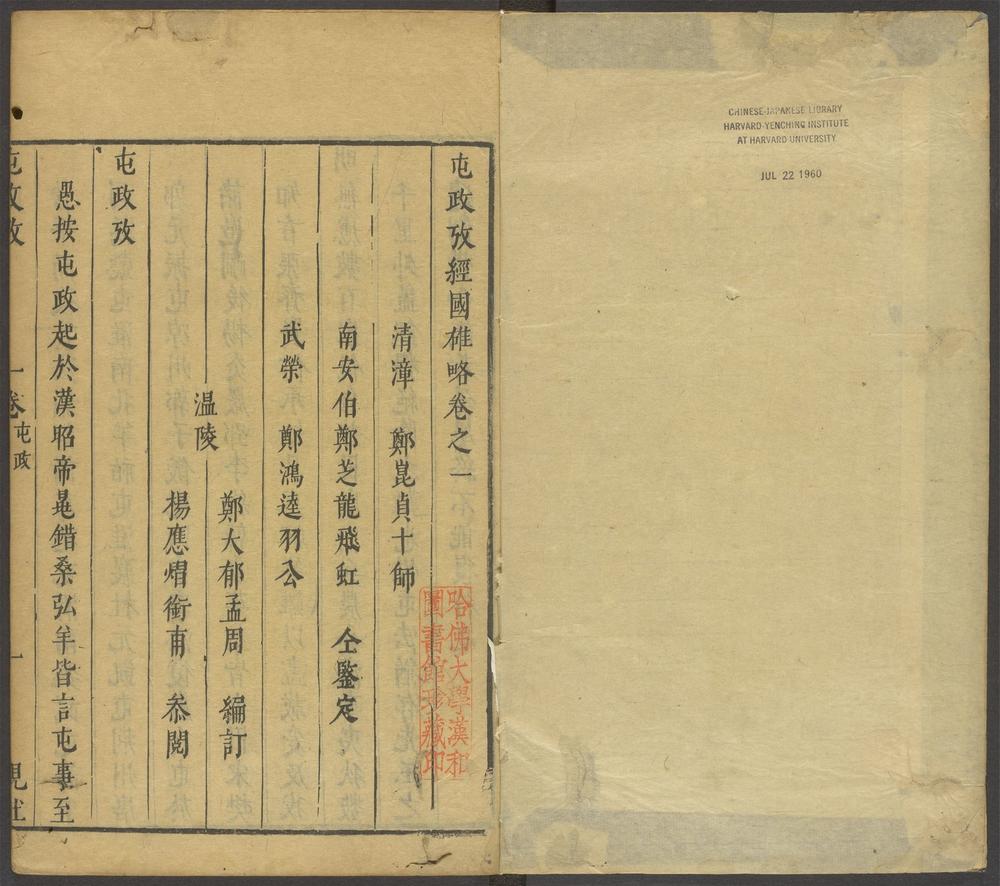 CHINESE-JAPANESE LIBRARY
HARVARD-YENCHING INSTITUTE
AT HARVARD UNIVERSITY
JUL 22 1960
屯政攷經國雄略卷之一
清漳 鄭崑貞十師
南安伯鄭芝龍飛虹 仝鑒定
武榮 鄭鴻逵羽公
溫陵
鄭大郁孟周 編訂
楊應焻銜甫 叅閱
屯政攷
愚按屯政起於漢昭帝晁錯桑弘羊皆言屯事至
屯政攷
一卷
屯政
一
哈佛大學漢和
圖書館珍藏印